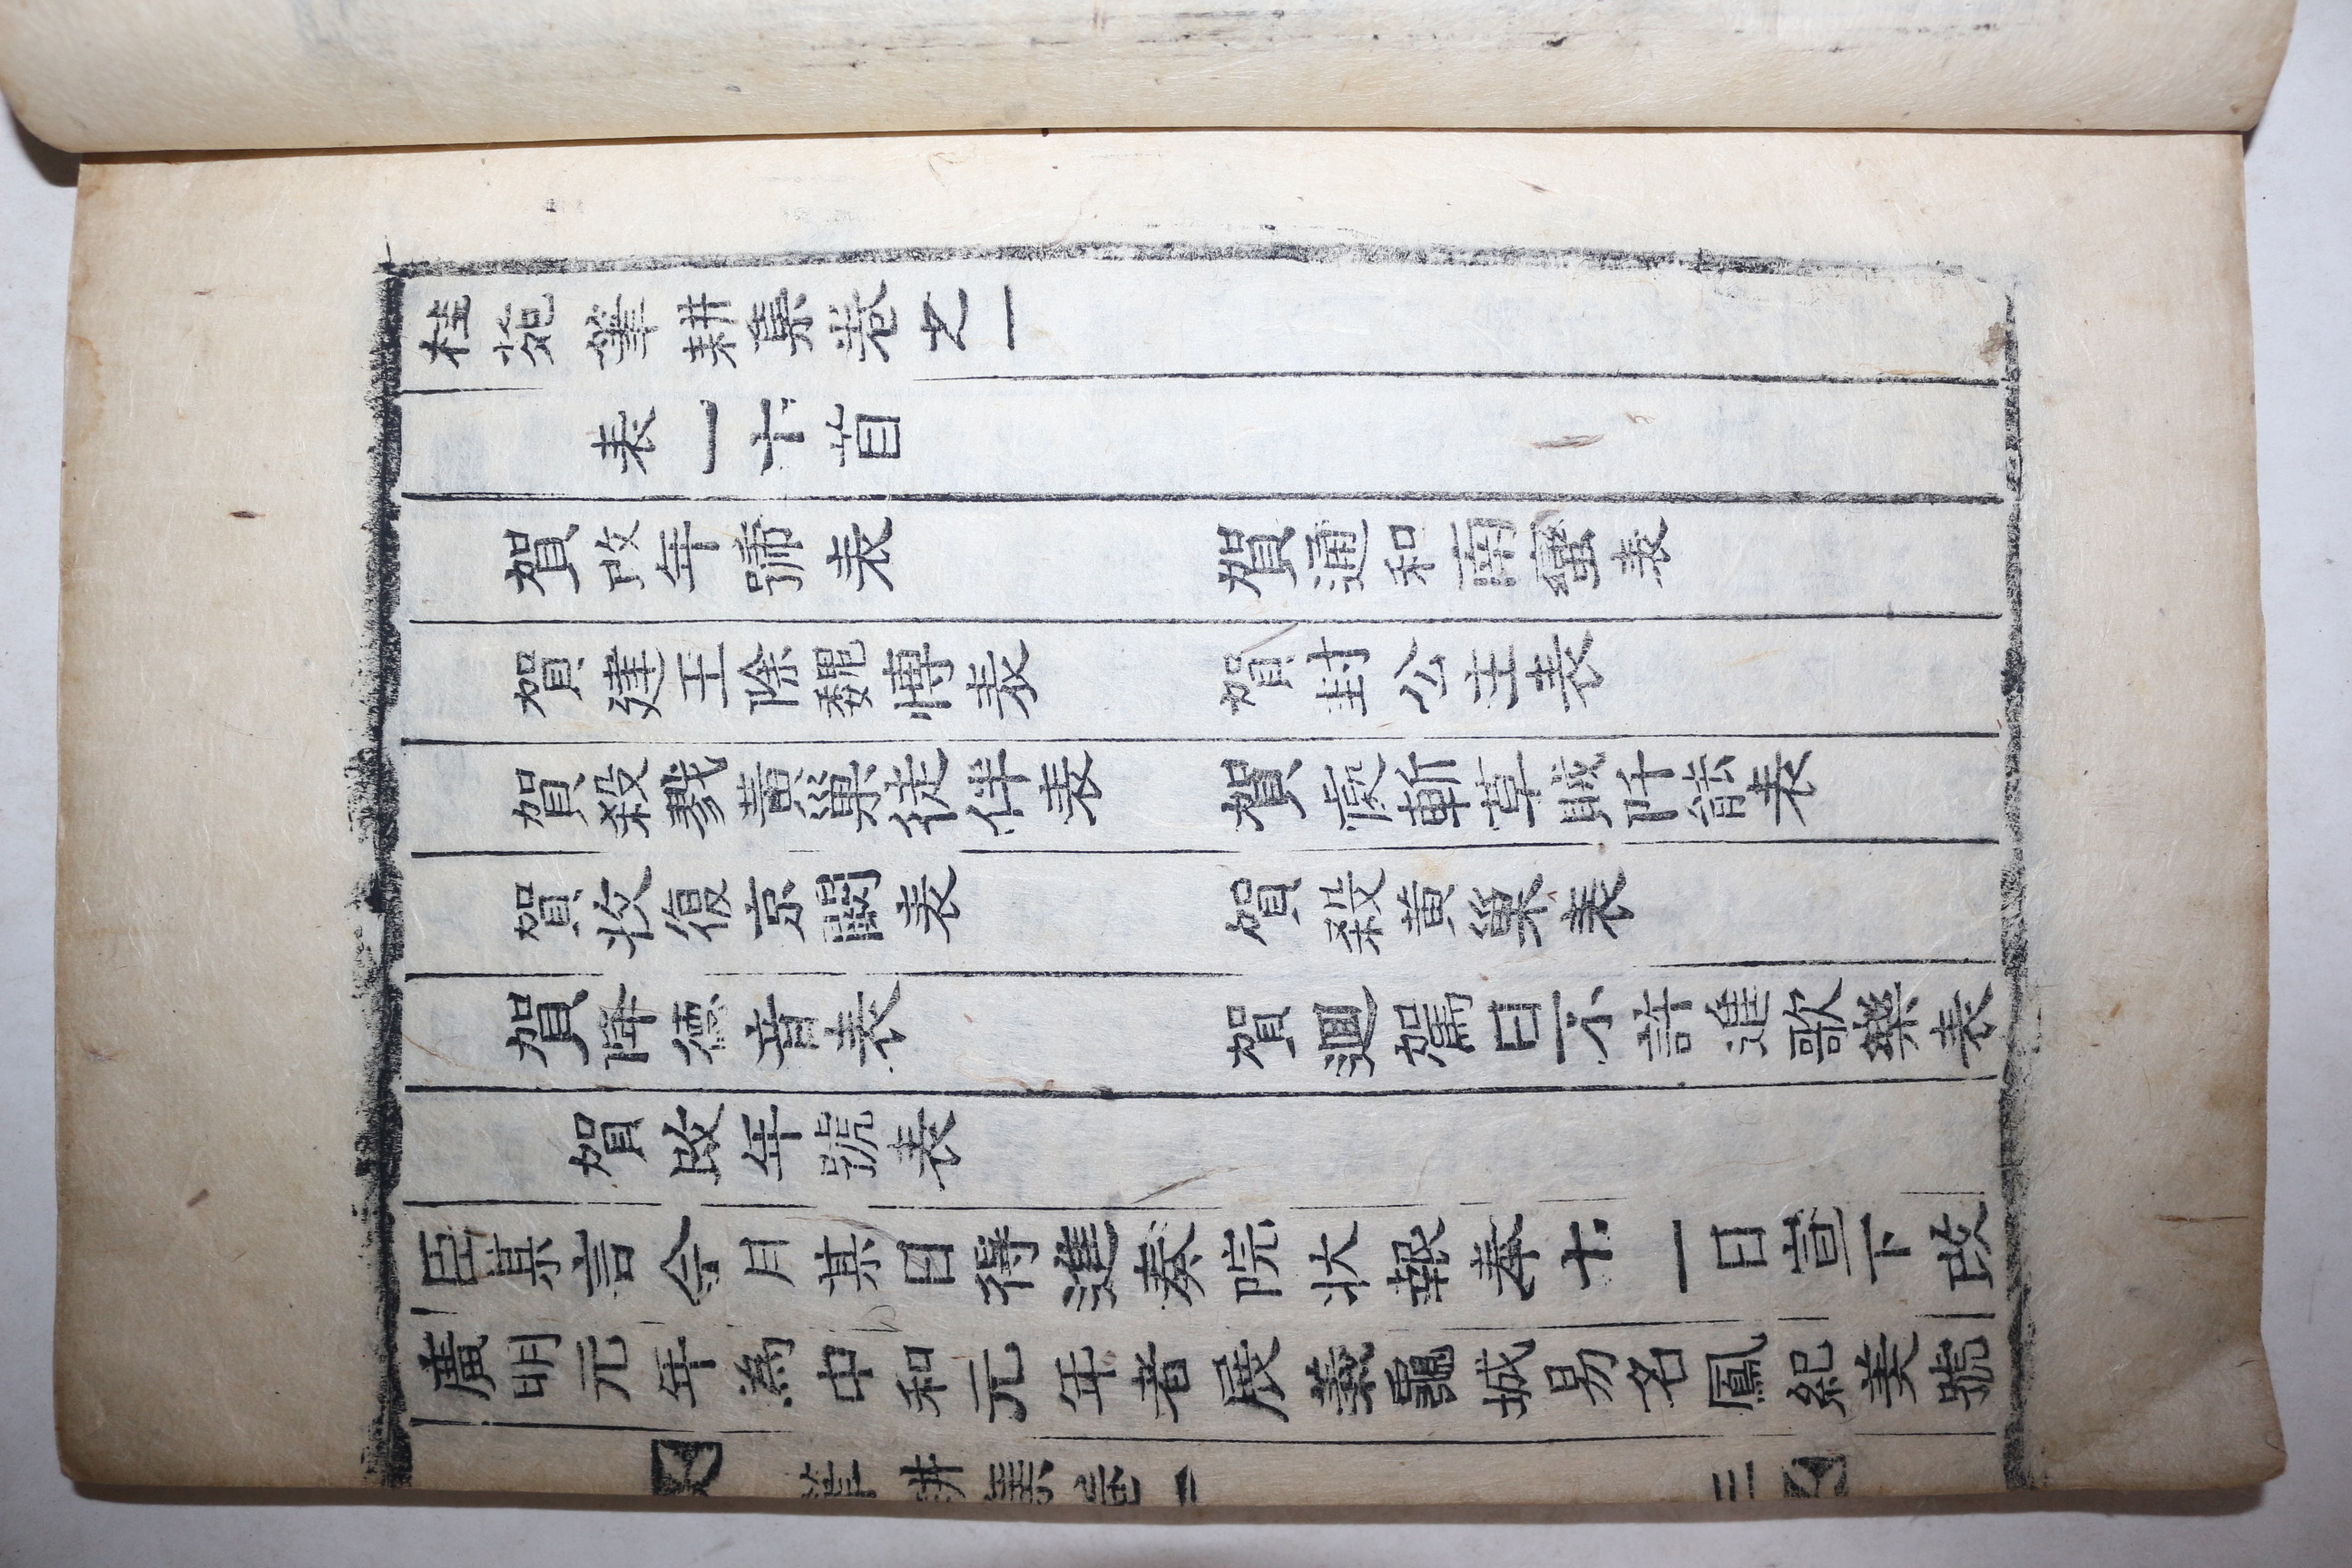 桂苑筆耕集卷之一
表一十首
賀改年號表 賀通和南蠻表
賀建王除魏博表 賀封公主表
賀殺戮黃巢徒伴表 賀處斬草賊阡能表
賀收復京闕表 賀殺黃巢表
賀降德音表 賀迴駕日不許進歌樂表
賀改年號表
臣某言今月某日得進奏院狀報奉十一日宣下改
廣明元年為中和元年者展義龜城易名鳳紀美號
筆耕集卷一 三